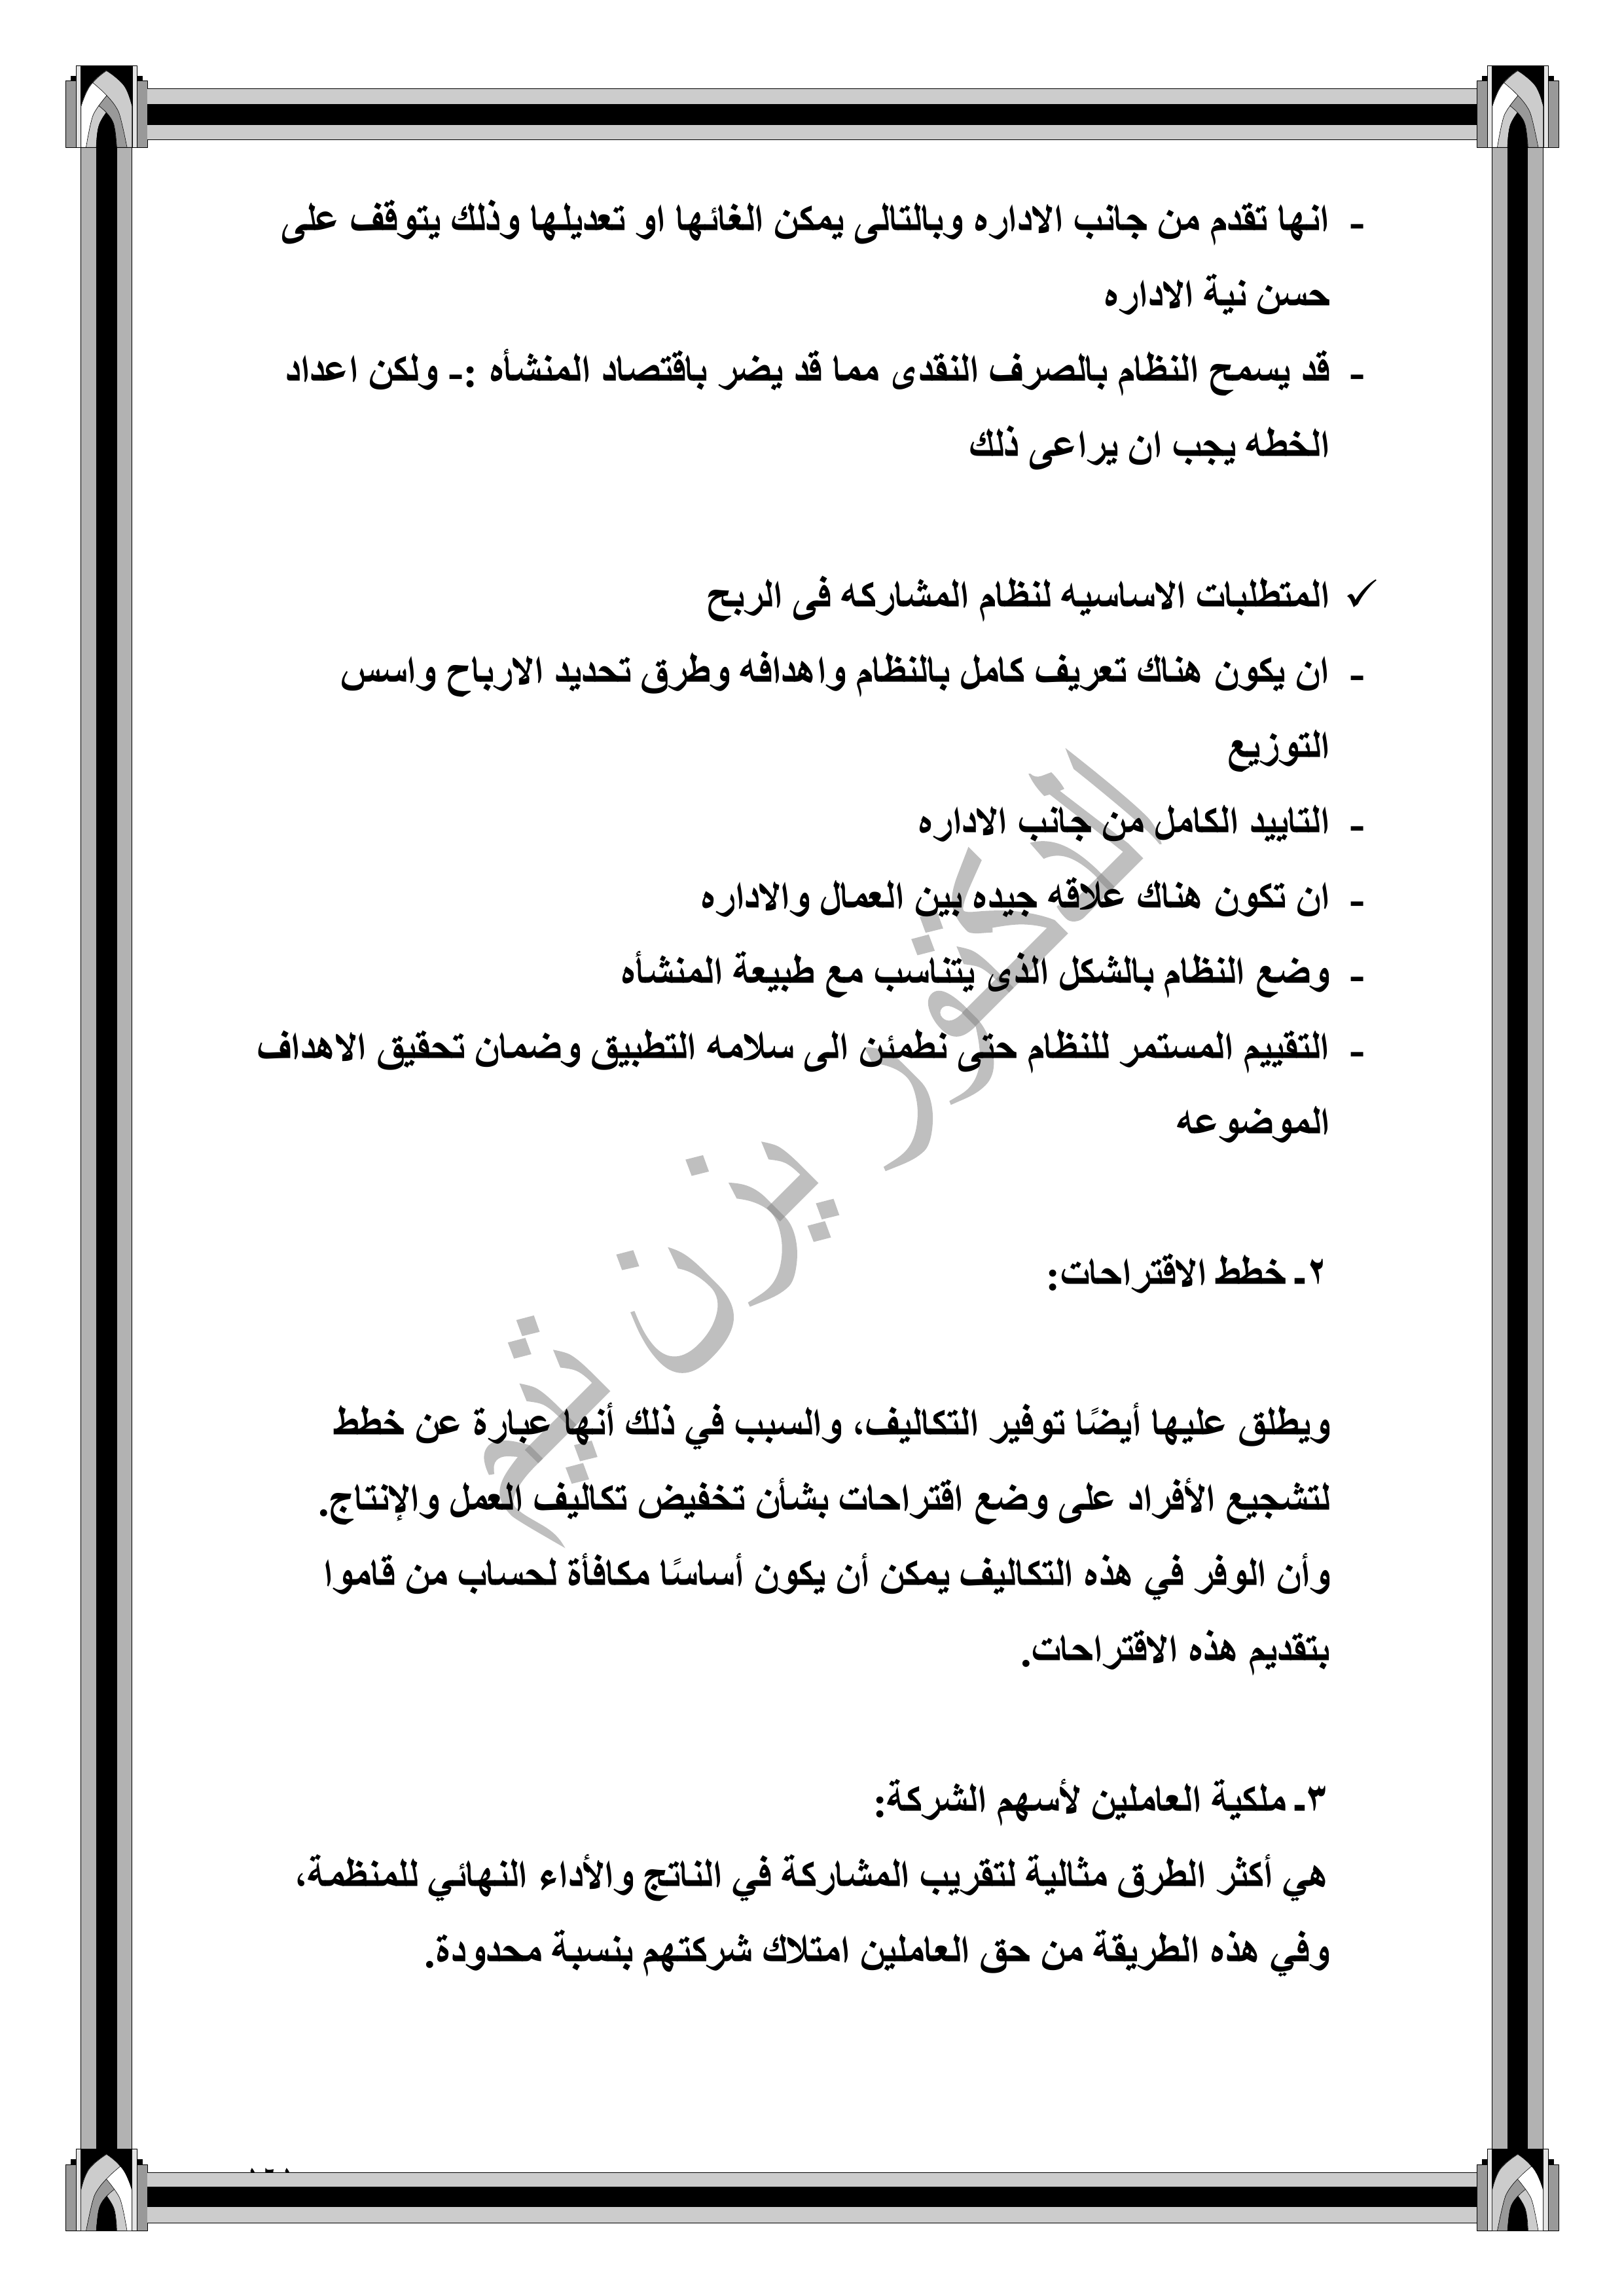 - انها تقدم من جانب الاداره وبالتالى يمكن الغائها او تعديلها وذلك يتوقف على
حسن نية الاداره
- قد يسمح النظام بالصرف النقدى مما قد يضر باقتصاد المنشأه :- ولكن اعداد
الخطه يجب ان يراعى ذلك
✓ المتطلبات الاساسيه لنظام المشاركه فى الربح
- ان يكون هناك تعريف كامل بالنظام واهدافه وطرق تحديد الارباح واسس
التوزيع
- التاييد الكامل من جانب الاداره
- ان تكون هناك علاقه جيده بين العمال والاداره
- وضع النظام بالشكل الذى يتناسب مع طبيعة المنشأه
- التقييم المستمر للنظام حتى نطمئن الى سلامه التطبيق وضمان تحقيق الاهداف
الموضوعه
٢- خطط الاقتراحات:
ويطلق عليها أيضًا توفير التكاليف، والسبب في ذلك أنها عبارة عن خطط
لتشجيع الأفراد على وضع اقتراحات بشأن تخفيض تكاليف العمل والإنتاج.
وأن الوفر في هذه التكاليف يمكن أن يكون أساسًا مكافأة لحساب من قاموا
بتقديم هذه الاقتراحات.
٣- ملكية العاملين لأسهم الشركة:
هي أكثر الطرق مثالية لتقريب المشاركة في الناتج والأداء النهائي للمنظمة،
وفي هذه الطريقة من حق العاملين امتلاك شركتهم بنسبة محدودة.
الدكتور يزن تيم